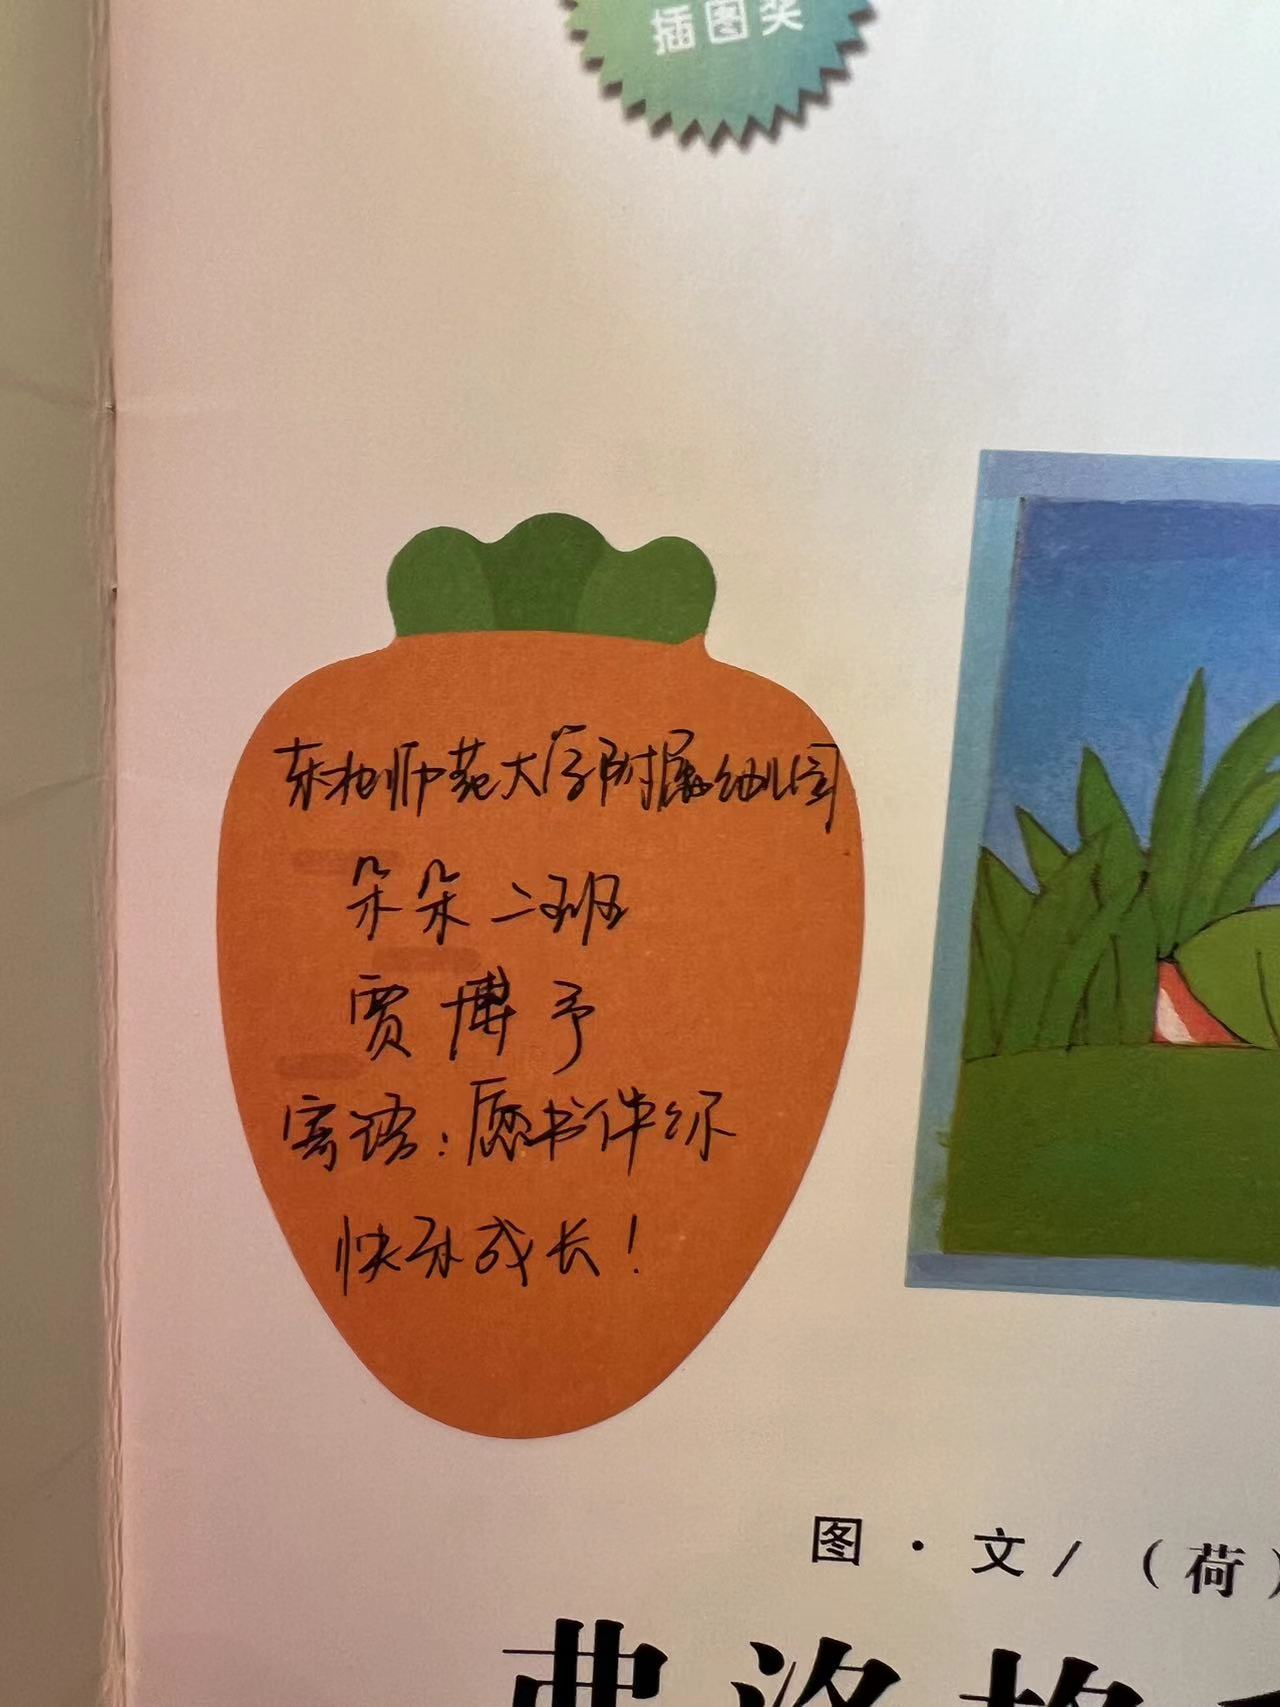 插图奖
东北师范大学附属幼儿园
朵朵二班
贾博予
寄语：愿书伴你
快乐成长！
图·文/（荷）
弗洛格